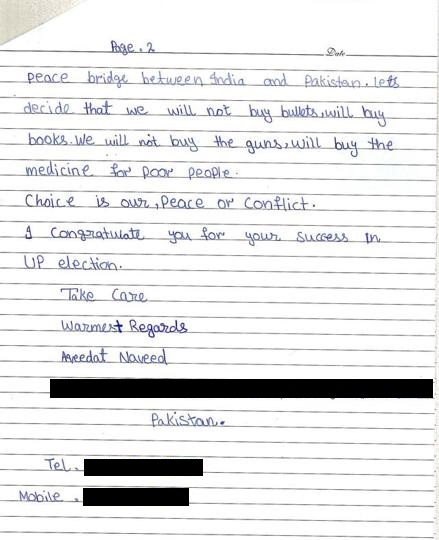 Page. 2
Date
peace bridge between India and Pakistan. lets
decide that we will not buy bullets, will buy
books. We will not buy the guns, will buy the
medicine for poor people.
Choice is our, Peace or Conflict.
I Congratulate you for your success in
UP election.
Take Care
Warmest Regards
Aqeedat Naveed
Pakistan.
Tel.
Mobile.